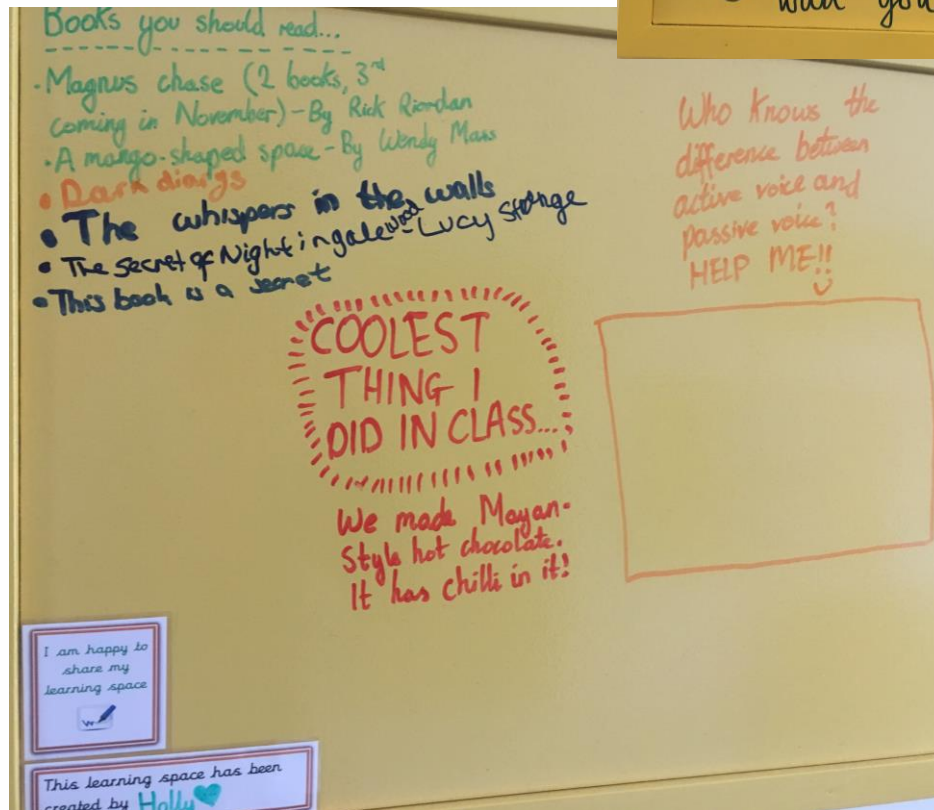 will you
Books you should read...
• Magnus chase (2 books, 3rd
coming in November) - By Rick Riordan
• A mango-shaped space - By Wendy Mass
• Dark diarys
• The whispers in the walls
• The secret of Nightingale wood - Lucy Strange
• This book is a secret
Who knows the
difference between
active voice and
passive voice?
HELP ME!!
COOLEST
THING I
DID IN CLASS...
We made Mayan-
Style hot chocolate.
It has chilli in it!
I am happy to
share my
learning space
This learning space has been
created by Holly